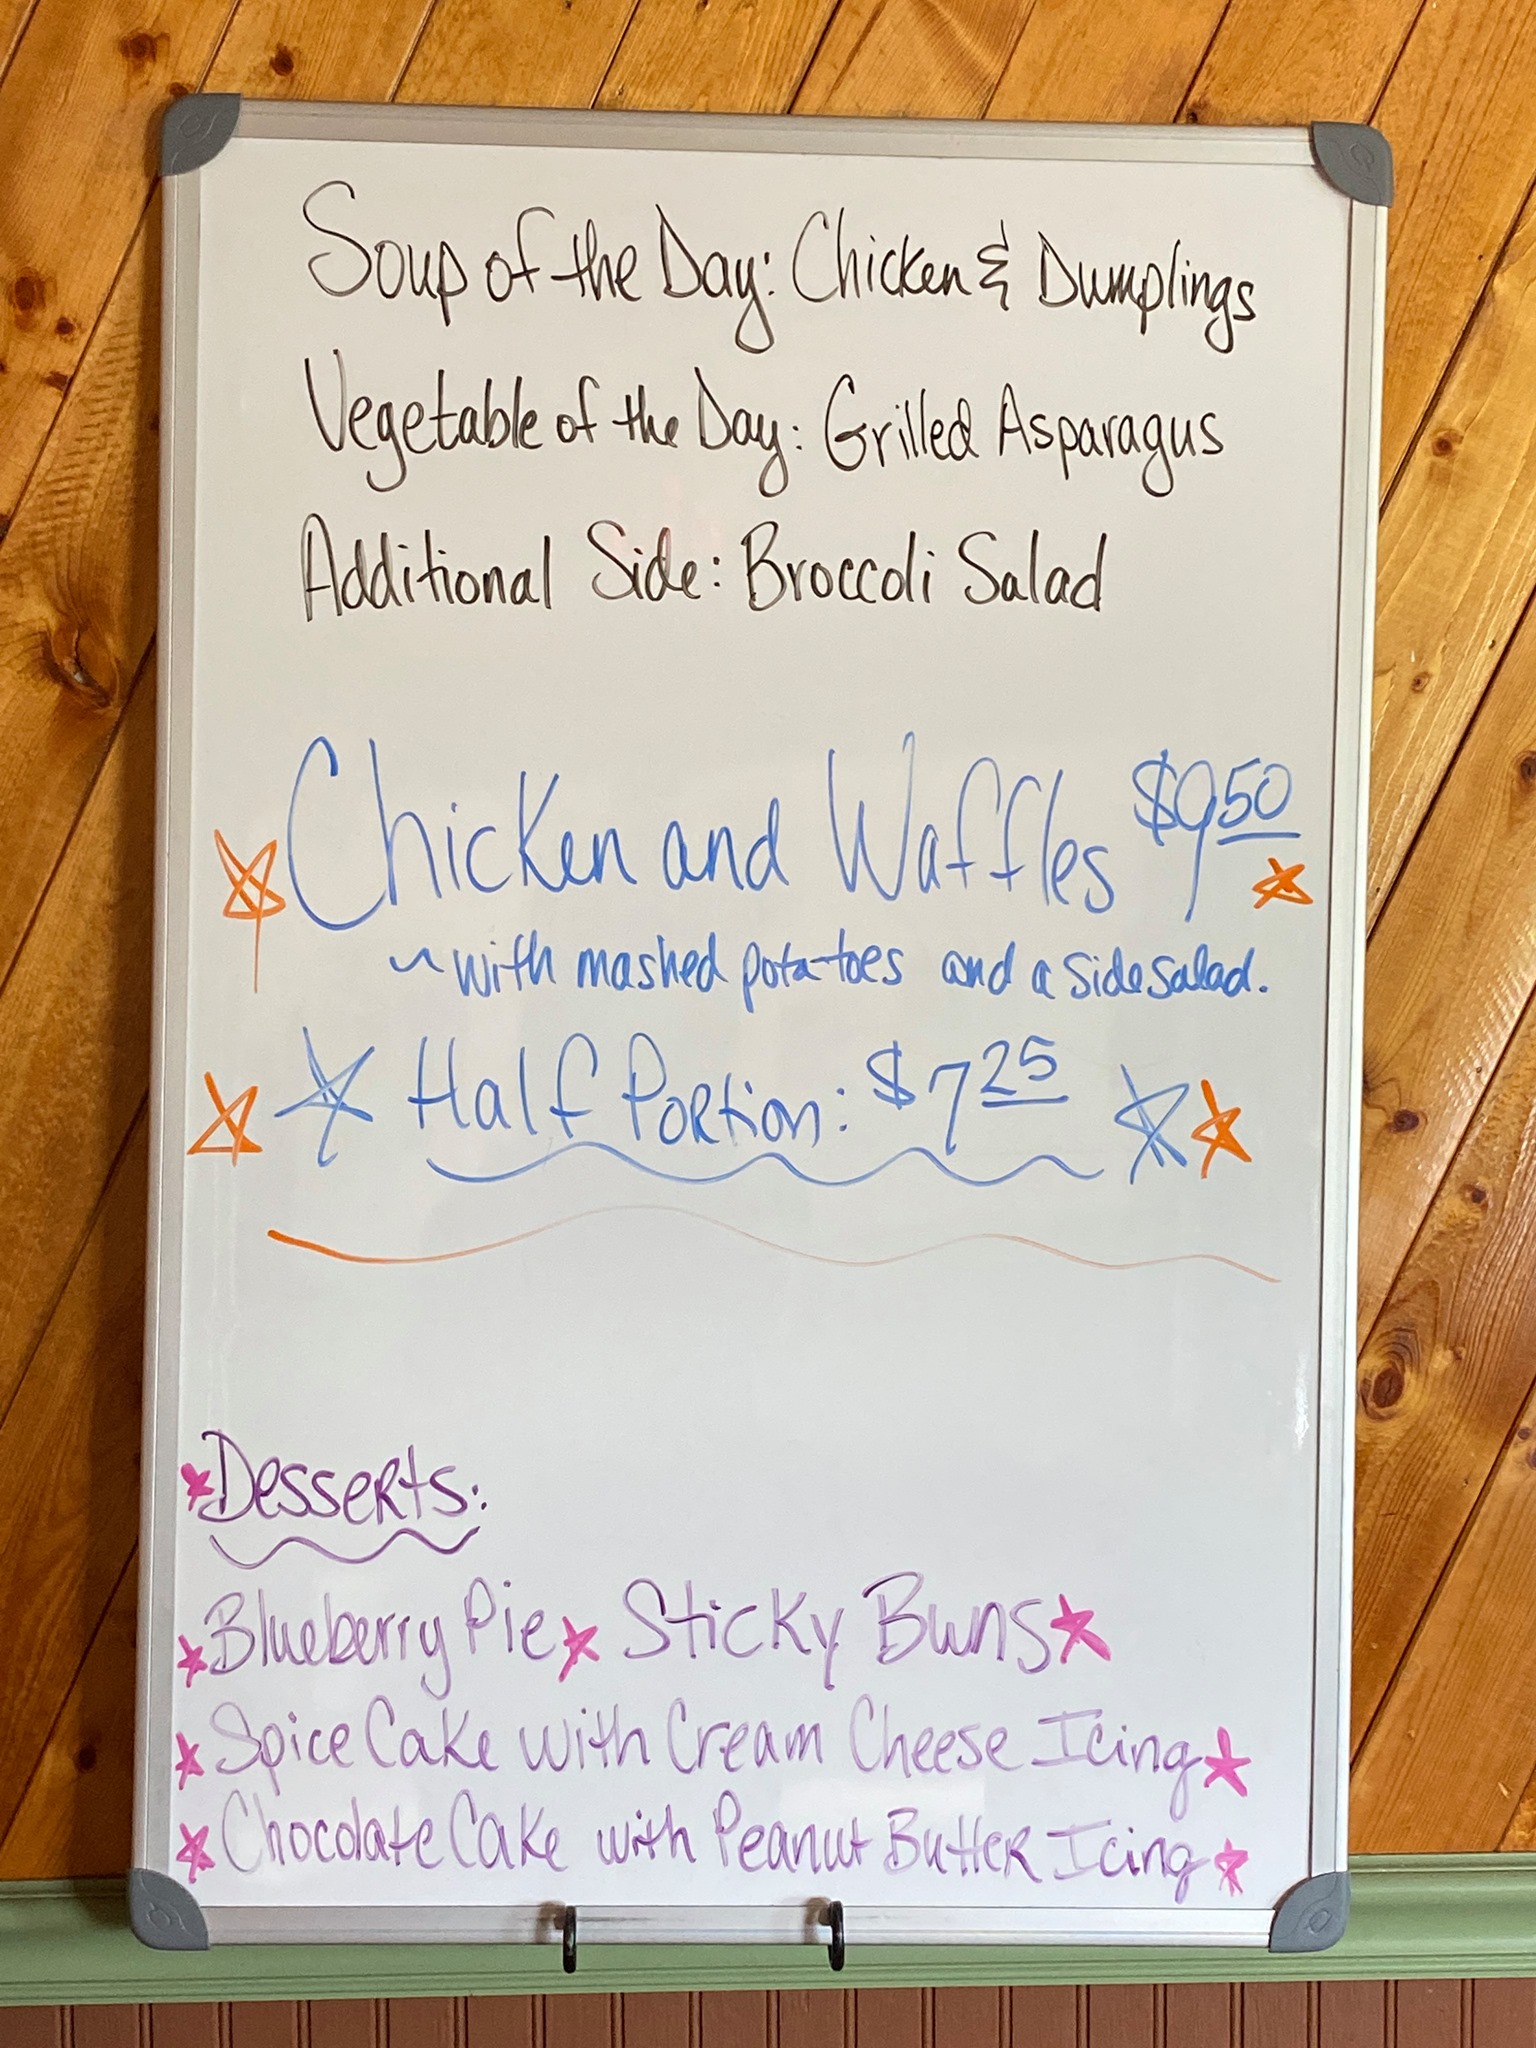 Soup of the Day: Chicken & Dumplings
Vegetable of the Day: Grilled Asparagus
Additional Side: Broccoli Salad
Chicken and Waffles $9 50
~ with mashed potatoes and a side salad.
Half Portion: $7 25
Desserts:
Blueberry Pie Sticky Buns
Spice Cake with Cream Cheese Icing
Chocolate Cake with Peanut Butter Icing